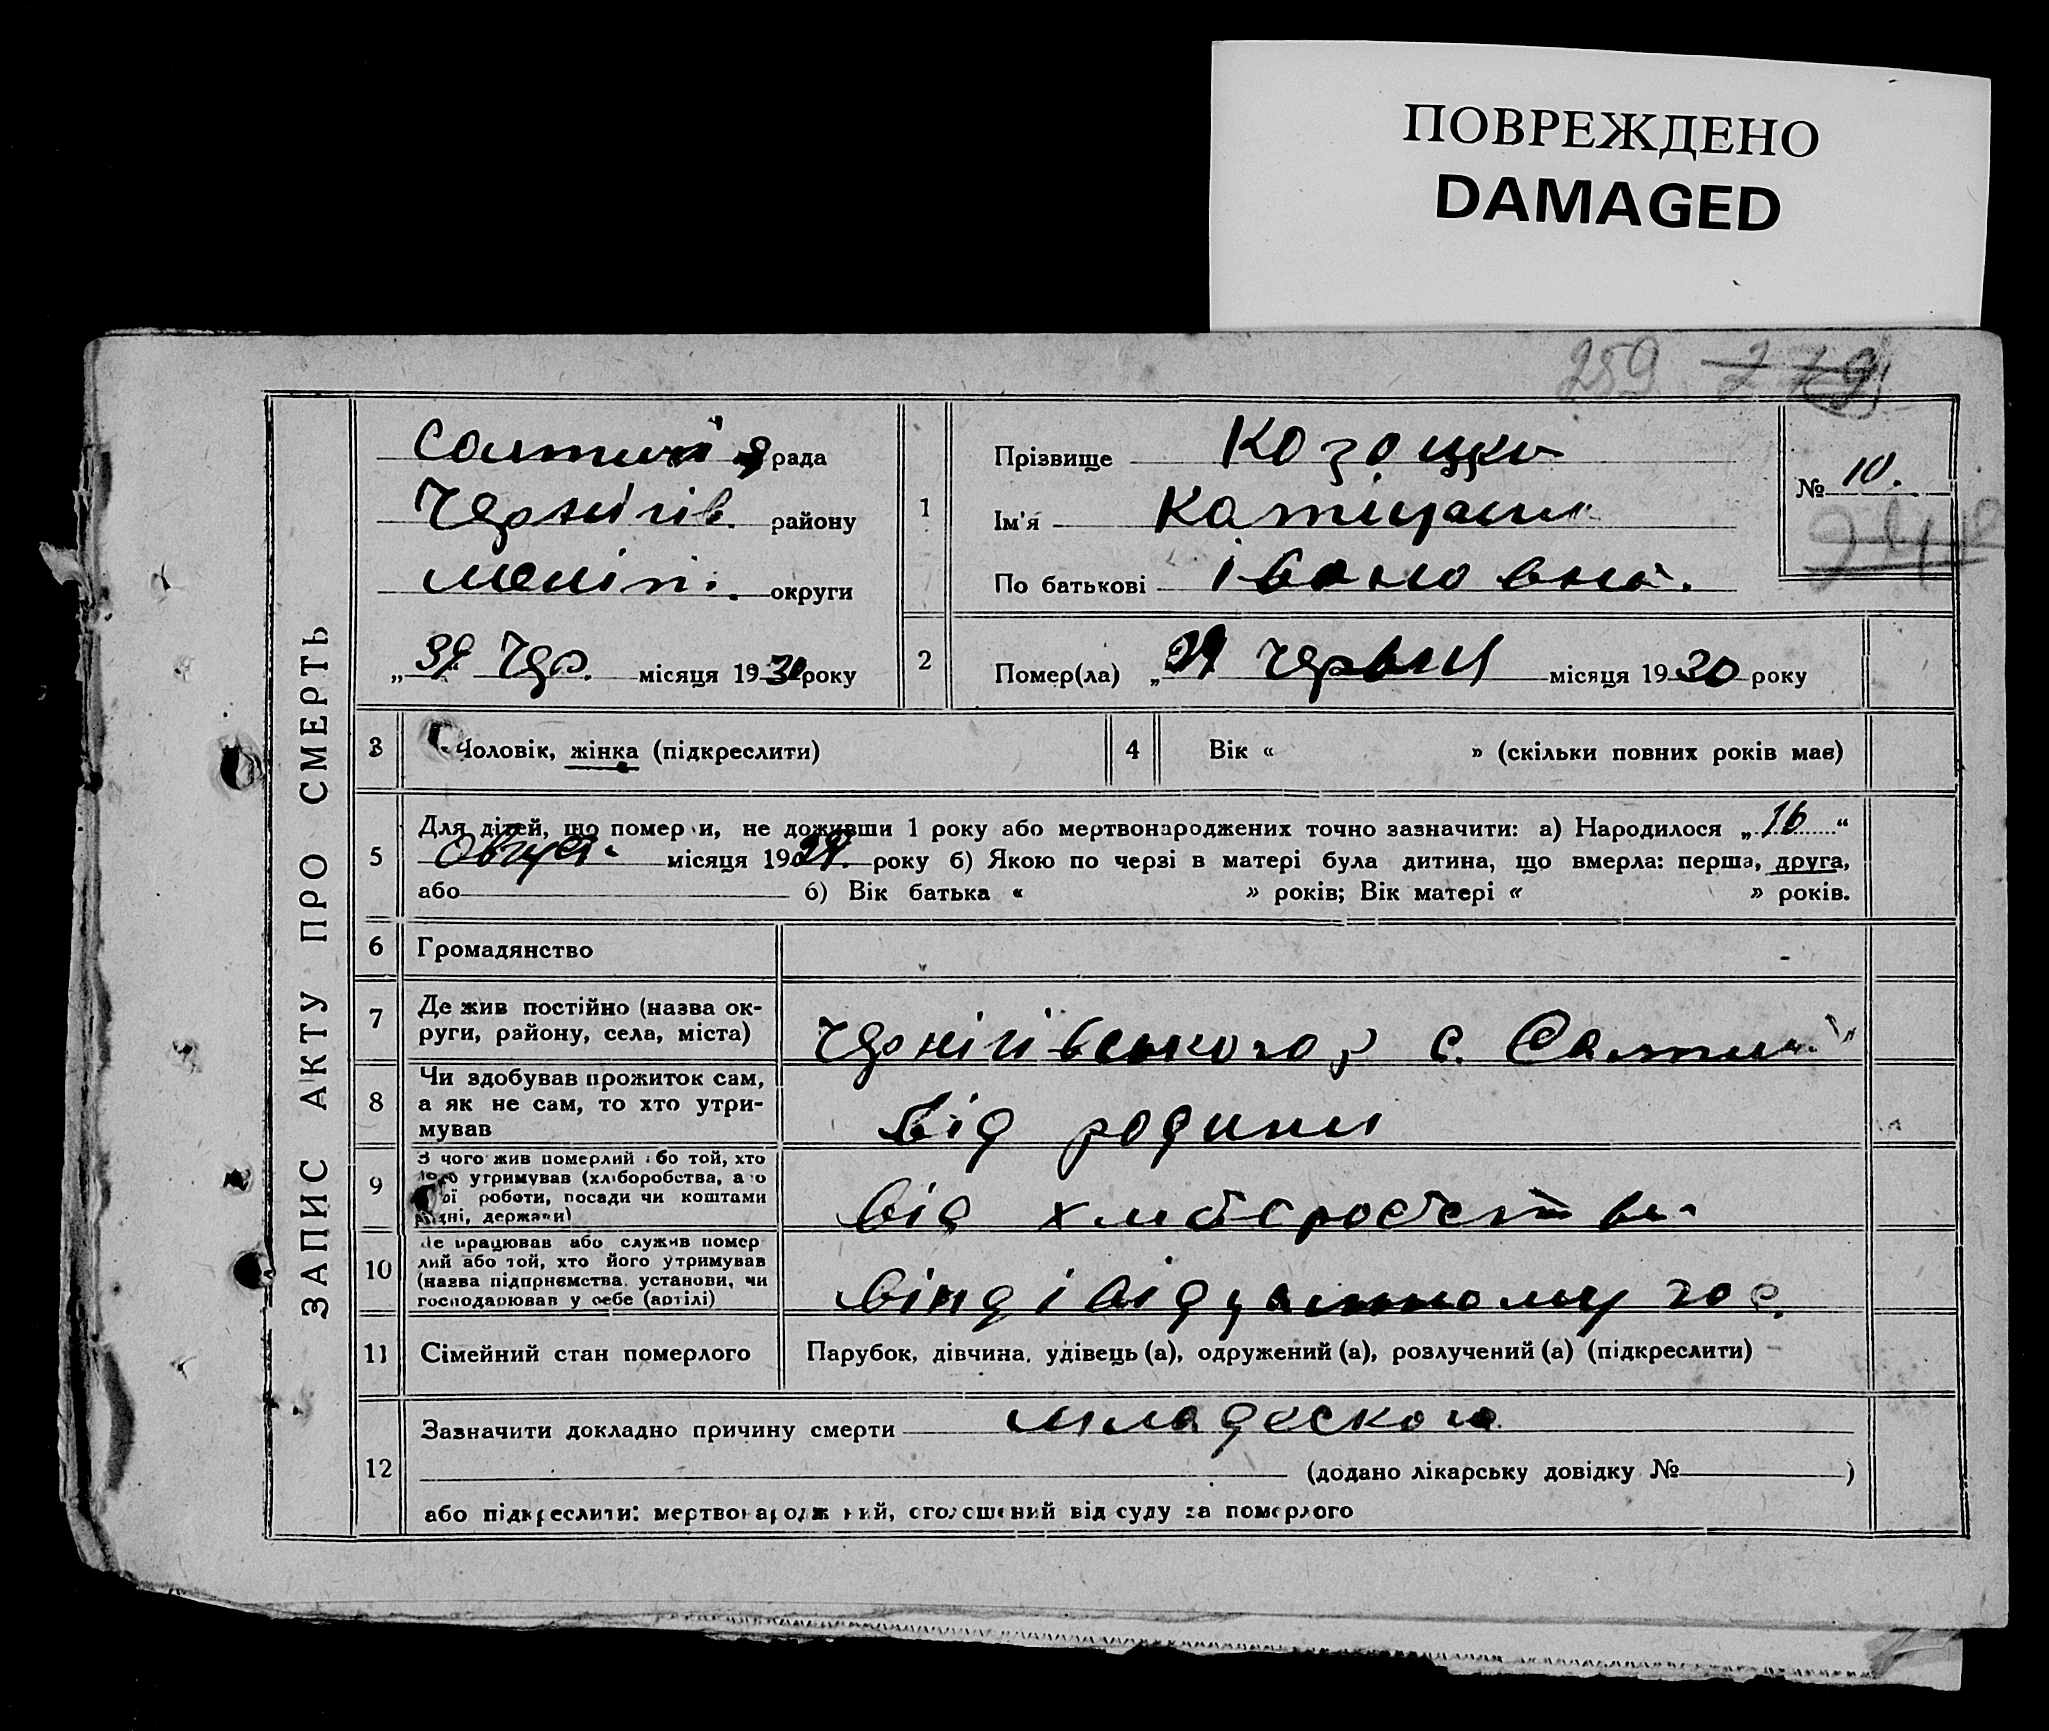 ПОВРЕЖДЕНО
DAMAGED
259 779
ЗАПИС АКТУ ПРО СМЕРТЬ
рада
Чернігів. району
Меліт. округи
„ Чер. місяця 1930 року
1
Прізвище Козоцка
Ім'я
По батькові Івановна.
№ 10.
2
Помер(ла) „ червня місяця 1930 року
3 Чоловік, жінка (підкреслити)
4 Вік « » (скільки повних років має)
5
Для дітей, що померли, не доживши 1 року або мертвонароджених точно зазначити: а) Народилося „16“
Август. місяця 1929. року б) Якою по черзі в матері була дитина, що вмерла: перша, друга,
або б) Вік батька « » років; Вік матері « » років.
6 Громадянство
7
Де жив постійно (назва ок-
руги, району, села, міста)
Чернігівського р с. Салтич
8
Чи здобував прожиток сам,
а як не сам, то хто утри-
мував
Від родини
9
З чого жив померлий або той, хто
його утримував (хліборобства, а
роботи, посади чи коштами
рідні, держави)
Від хліборобства
10
Де працював або служив помер
лий або той, хто його утримував
(назва підприємства, установи, чи
господарював у себе (артілі)
гос.
11 Сімейний стан померлого
Парубок, дівчина, удівець (а), одружений (а), розлучений (а) (підкреслити)
12
Зазначити докладно причину смерти младеского
(додано лікарську довідку № )
або підкреслити: мертвонароджений, оголошений від суду за померлого